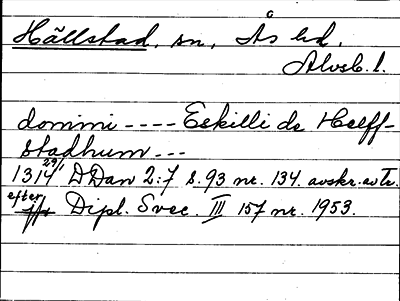 Hällstad, sn, Ås hd,
Älvsb. l.
domini ---- Eskilli de Heelf-
stadhum ---
1314 29/1 DDan 2:7 s. 93 nr. 134. avskr. av tr.
efter Dipl. Svec. III 157 nr. 1953.